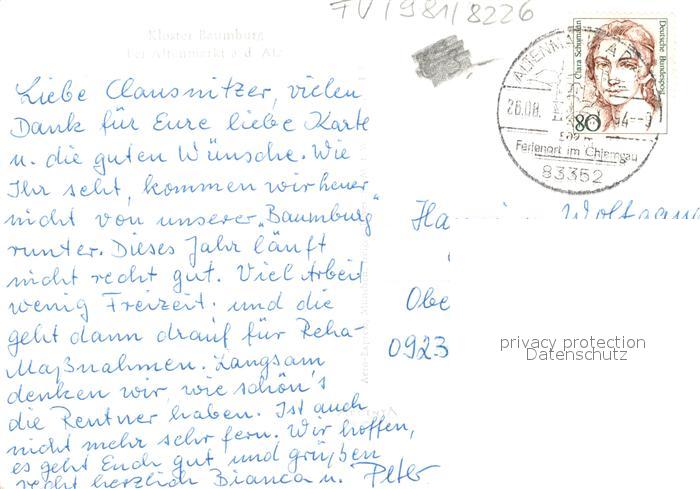 FV/981/8226
Kloster Baumburg
bei Altenmarkt a. d. Alz
Liebe Clausnitzer, vielen
Dank für Eure liebe Karte
u. die guten Wünsche. Wie
Ihr seht, kommen wir heuer
nicht von unserer „Baumburg"
runter. Dieses Jahr läuft
nicht recht gut. Viel Arbeit
wenig Freizeit. und die
geht dann drauf für Reha-
Maßnahmen. Langsam
denken wir, wie schön's
die Rentner haben. Ist auch
nicht mehr sehr fern. Wir hoffen,
es geht Euch gut und grüßen
recht herzlich Bianca u. Peter
Clara Schumann
Deutsche Bundespost
80
ALTENMA
26.08.
94--9
509 m
Ferienort im Chiemgau
83352
Ha
Wolfgang
Obe
0923
privacy protection
Datenschutz